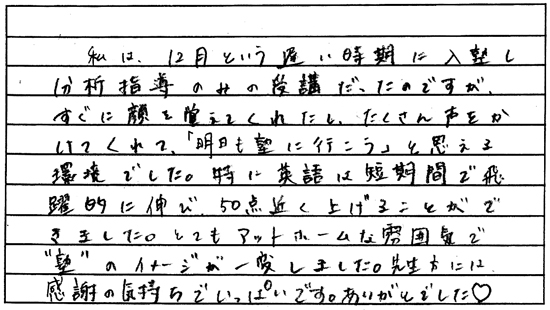 私は、12月という遅い時期に入塾し
分析指導のみの受講だったのですが、
すぐに顔を覚えてくれたし、たくさん声をか
けてくれて、「明日も塾に行こう」と思える
環境でした。特に英語は短期間で飛
躍的に伸び、50点近く上げることがで
きました。とてもアットホームな雰囲気で
"塾"のイメージが一変しました。先生方には
感謝の気持ちでいっぱいです。ありがとでした♡